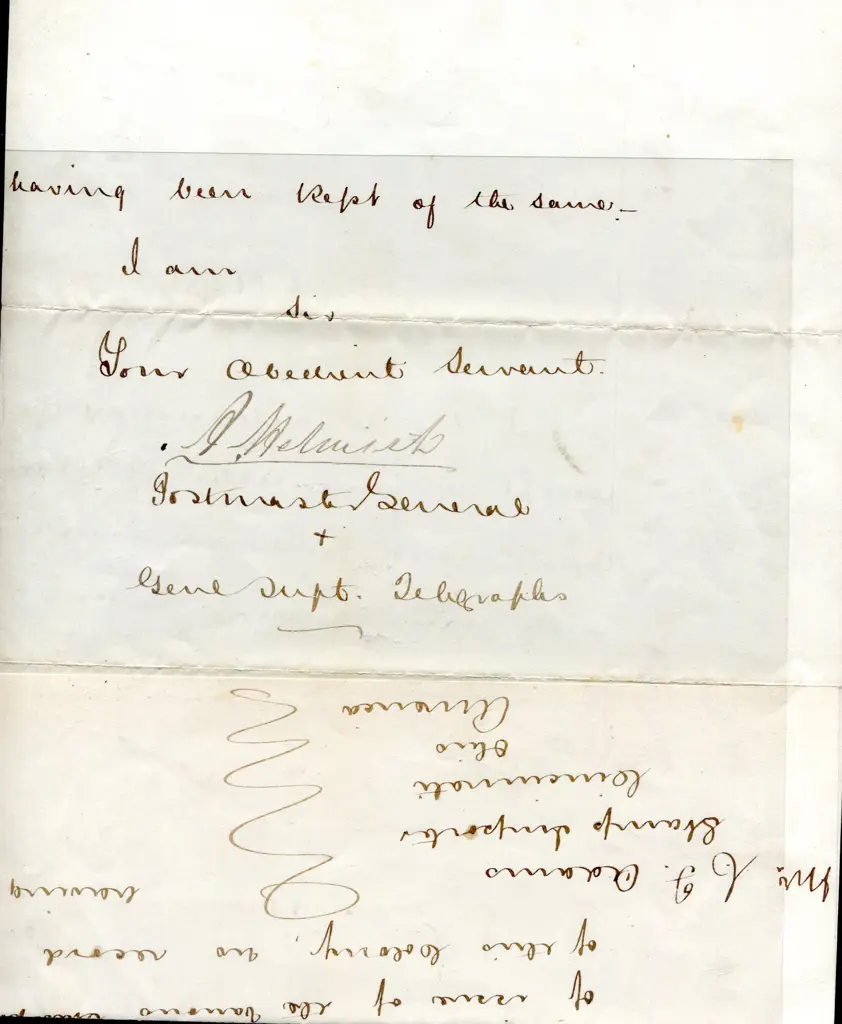 having been kept of the same. –
I am
Sir
Your Obedient Servant.
A. Helmich
Postmaster General
+
Genl Supt. Telegraphs
of issue of the various
of this Colony, no record
having
Mr. F. Adams
Stamp Importer
Cincinnati
Ohio
America